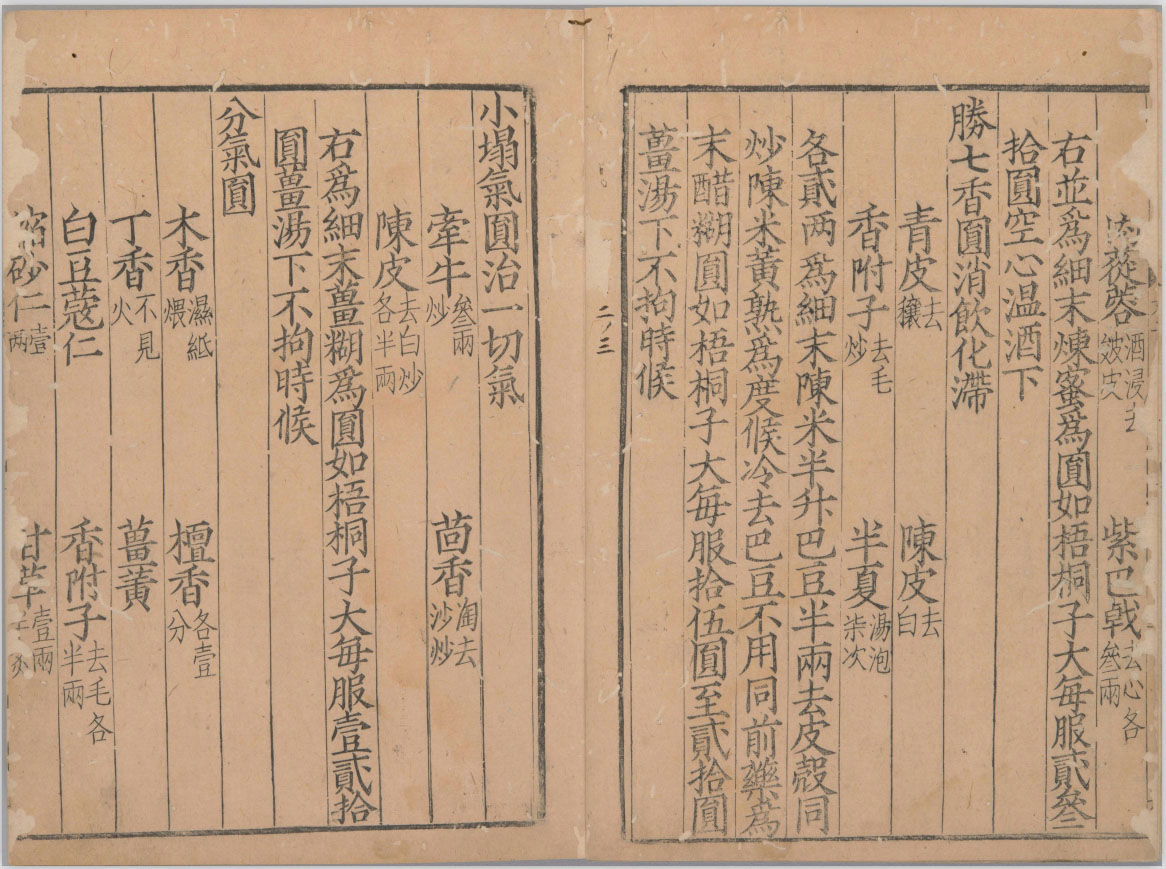 蓯蓉酒浸去皴皮 紫巴戟去心各參兩
右並爲細末煉蜜爲圓如梧桐子大每服貳叁
拾圓空心温酒下
勝七香圓消飲化滯
青皮去穰 陳皮去白
香附子去毛炒 半夏湯泡柒次
各貳两爲細末陳米半升巴豆半兩去皮殼同
炒陳米黃熟爲度候冷去巴豆不用同前藥爲
末醋糊圓如梧桐子大每服拾伍圓至貳拾圓
薑湯下不拘時候
二ノ三
小塌氣圓治一切氣
牽牛叁兩炒 茴香淘去沙炒
陳皮去白炒各半兩
右爲細末薑糊爲圓如梧桐子大每服壹貳拾
圓薑湯下不拘時候
分氣圓
木香濕紙煨 檀香各壹分
丁香不見火 薑黃
白豆蔻仁 香附子去毛各半兩
砂仁壹兩 甘草壹兩